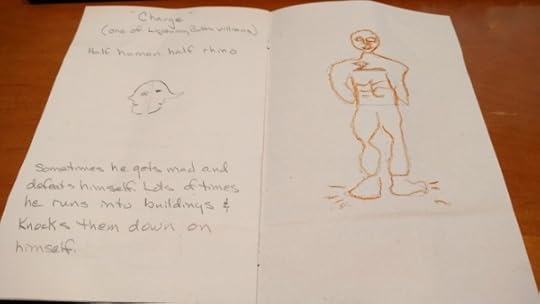 "Charge"
(one of Lightning Bolts villians)
Half human half rhino
Sometimes he gets mad and
defeats himself. Lots of times
he runs into buildings &
knocks them down on
himself.